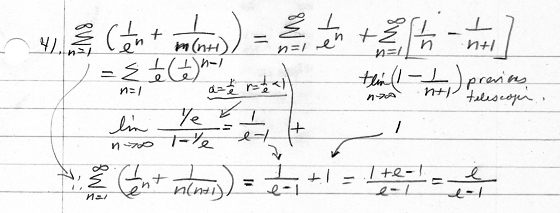 41. ∑_{n=1}^{∞} (1/e^n + 1/(n(n+1))) = ∑_{n=1}^{∞} 1/e^n + ∑_{n=1}^{∞} [1/n - 1/(n+1)]
= ∑_{n=1}^{∞} 1/e (1/e)^{n-1} + lim_{n→∞} (1 - 1/(n+1)) previous
a = 1/e r = 1/e < 1 telescopin.
lim_{n→∞} (1/e)/(1 - 1/e) = 1/(e-1) + 1
∴ ∑_{n=1}^{∞} (1/e^n + 1/(n(n+1))) = 1/(e-1) + 1 = (1+e-1)/(e-1) = e/(e-1)